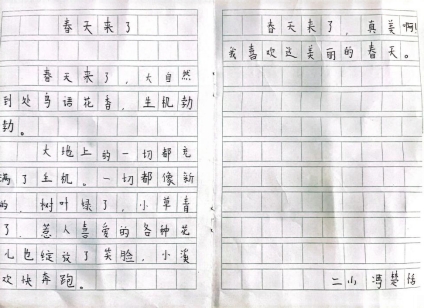 春天来了
春天来了，大自然
到处鸟语花香，生机勃
勃。
大地上的一切都充
满了生机。一切都像新
的，树叶绿了，小草青
了，惹人喜爱的各种花
儿也绽放了笑脸，小溪
欢快奔跑。
春天来了，真美啊！
我喜欢这美丽的春天。
二小 冯楚恬